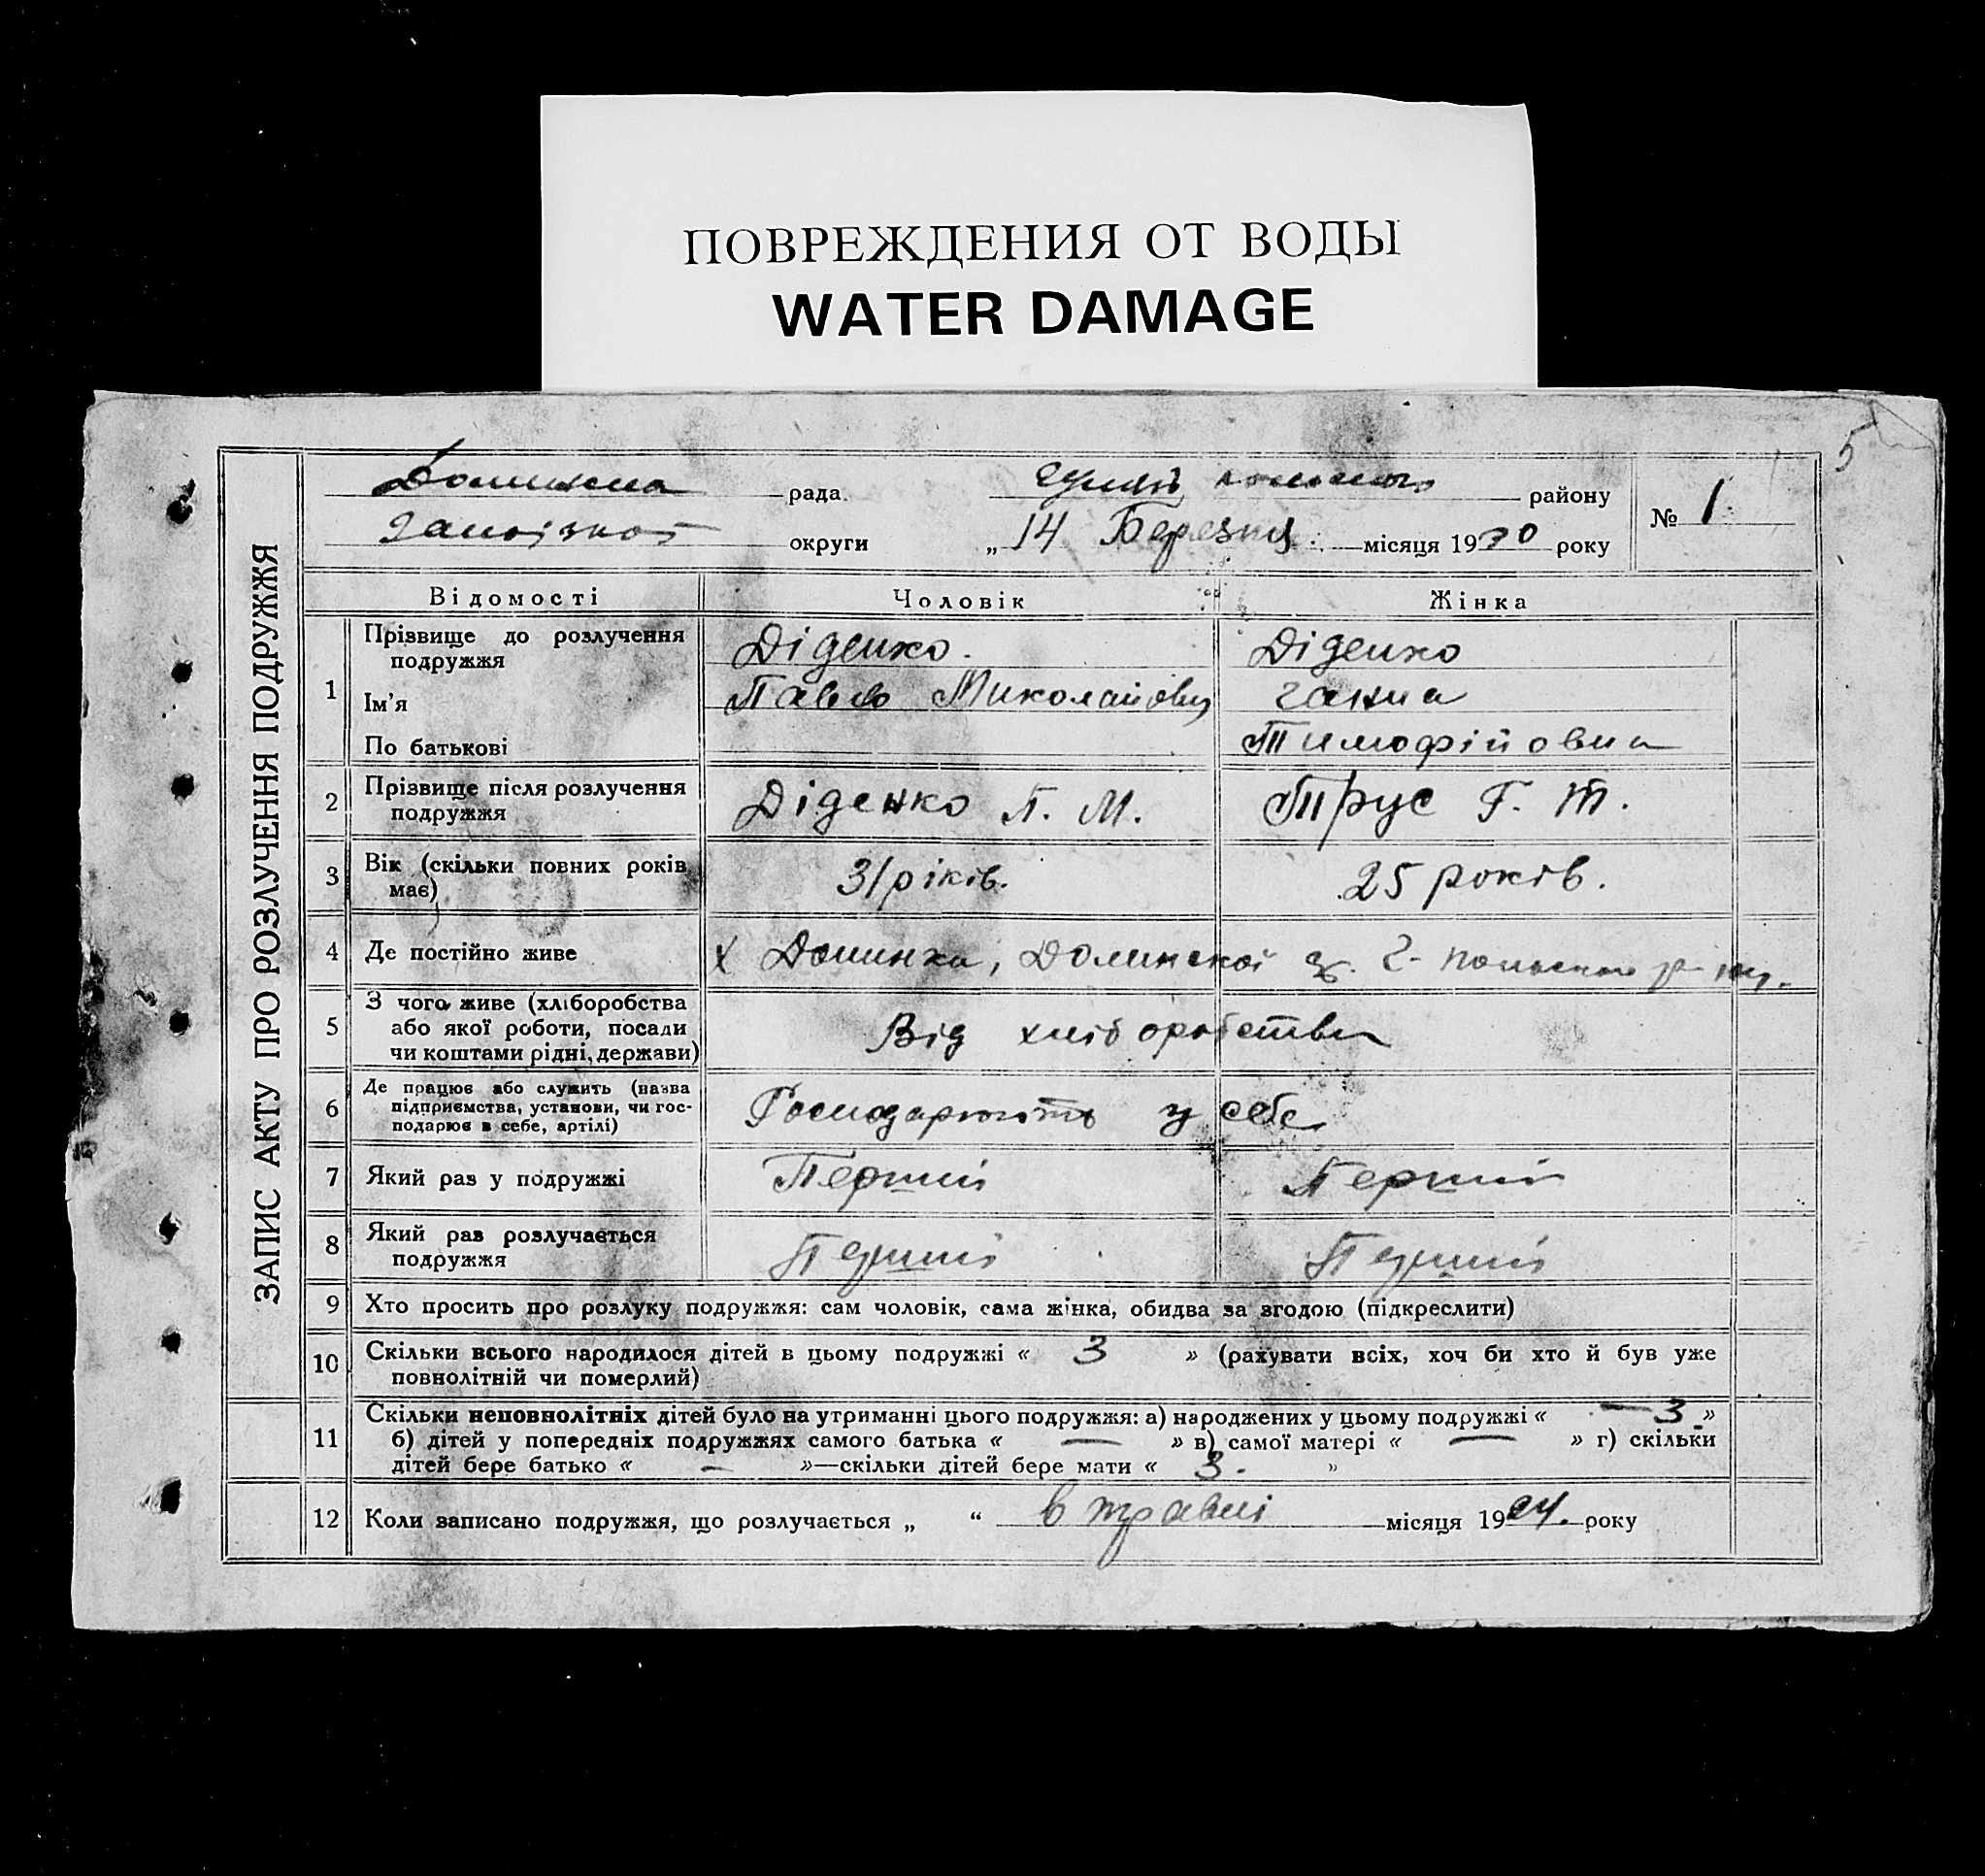 ПОВРЕЖДЕНИЯ ОТ ВОДЫ
WATER DAMAGE
5
ЗАПИС АКТУ ПРО РОЗЛУЧЕННЯ ПОДРУЖЖЯ
рада району
№ 1.
округи „ 14 Березня місяця 1930 року
Відомості Чоловік Жінка
1 Прізвище до розлучення Діденко. Діденко
подружжя
Ім'я Павло Миколайович Ганна
По батькові Тимофійовна
2 Прізвище після розлучення Діденко П. М. Трус Г. Т.
подружжя
3 Вік (скільки повних років 31 років. 25 років.
має)
4 Де постійно живе х Долинка, Долинської
5 З чого живе (хліборобства
або якої роботи, посади Від хліборобства
чи коштами рідні, держави)
6 Де працює або служить (назва
підприємства, установи, чи гос- Господарюють у себе
подарює в себе, артілі)
7 Який раз у подружжі Перший Перший
8 Який раз розлучається Перший Перший
подружжя
9 Хто просить про розлуку подружжя: сам чоловік, сама жінка, обидва за згодою (підкреслити)
10 Скільки всього народилося дітей в цьому подружжі « 3 » (рахувати всіх, хоч би хто й був уже
повнолітній чи померлий)
11 Скільки неповнолітніх дітей було на утриманні цього подружжя: а) народжених у цьому подружжі « — 3 »
б) дітей у попередніх подружжях самого батька « — » в) самої матері « — » г) скільки
дітей бере батько « — »—скільки дітей бере мати « 3. »
12 Коли записано подружжя, що розлучається „ “ в травні місяця 1924. року